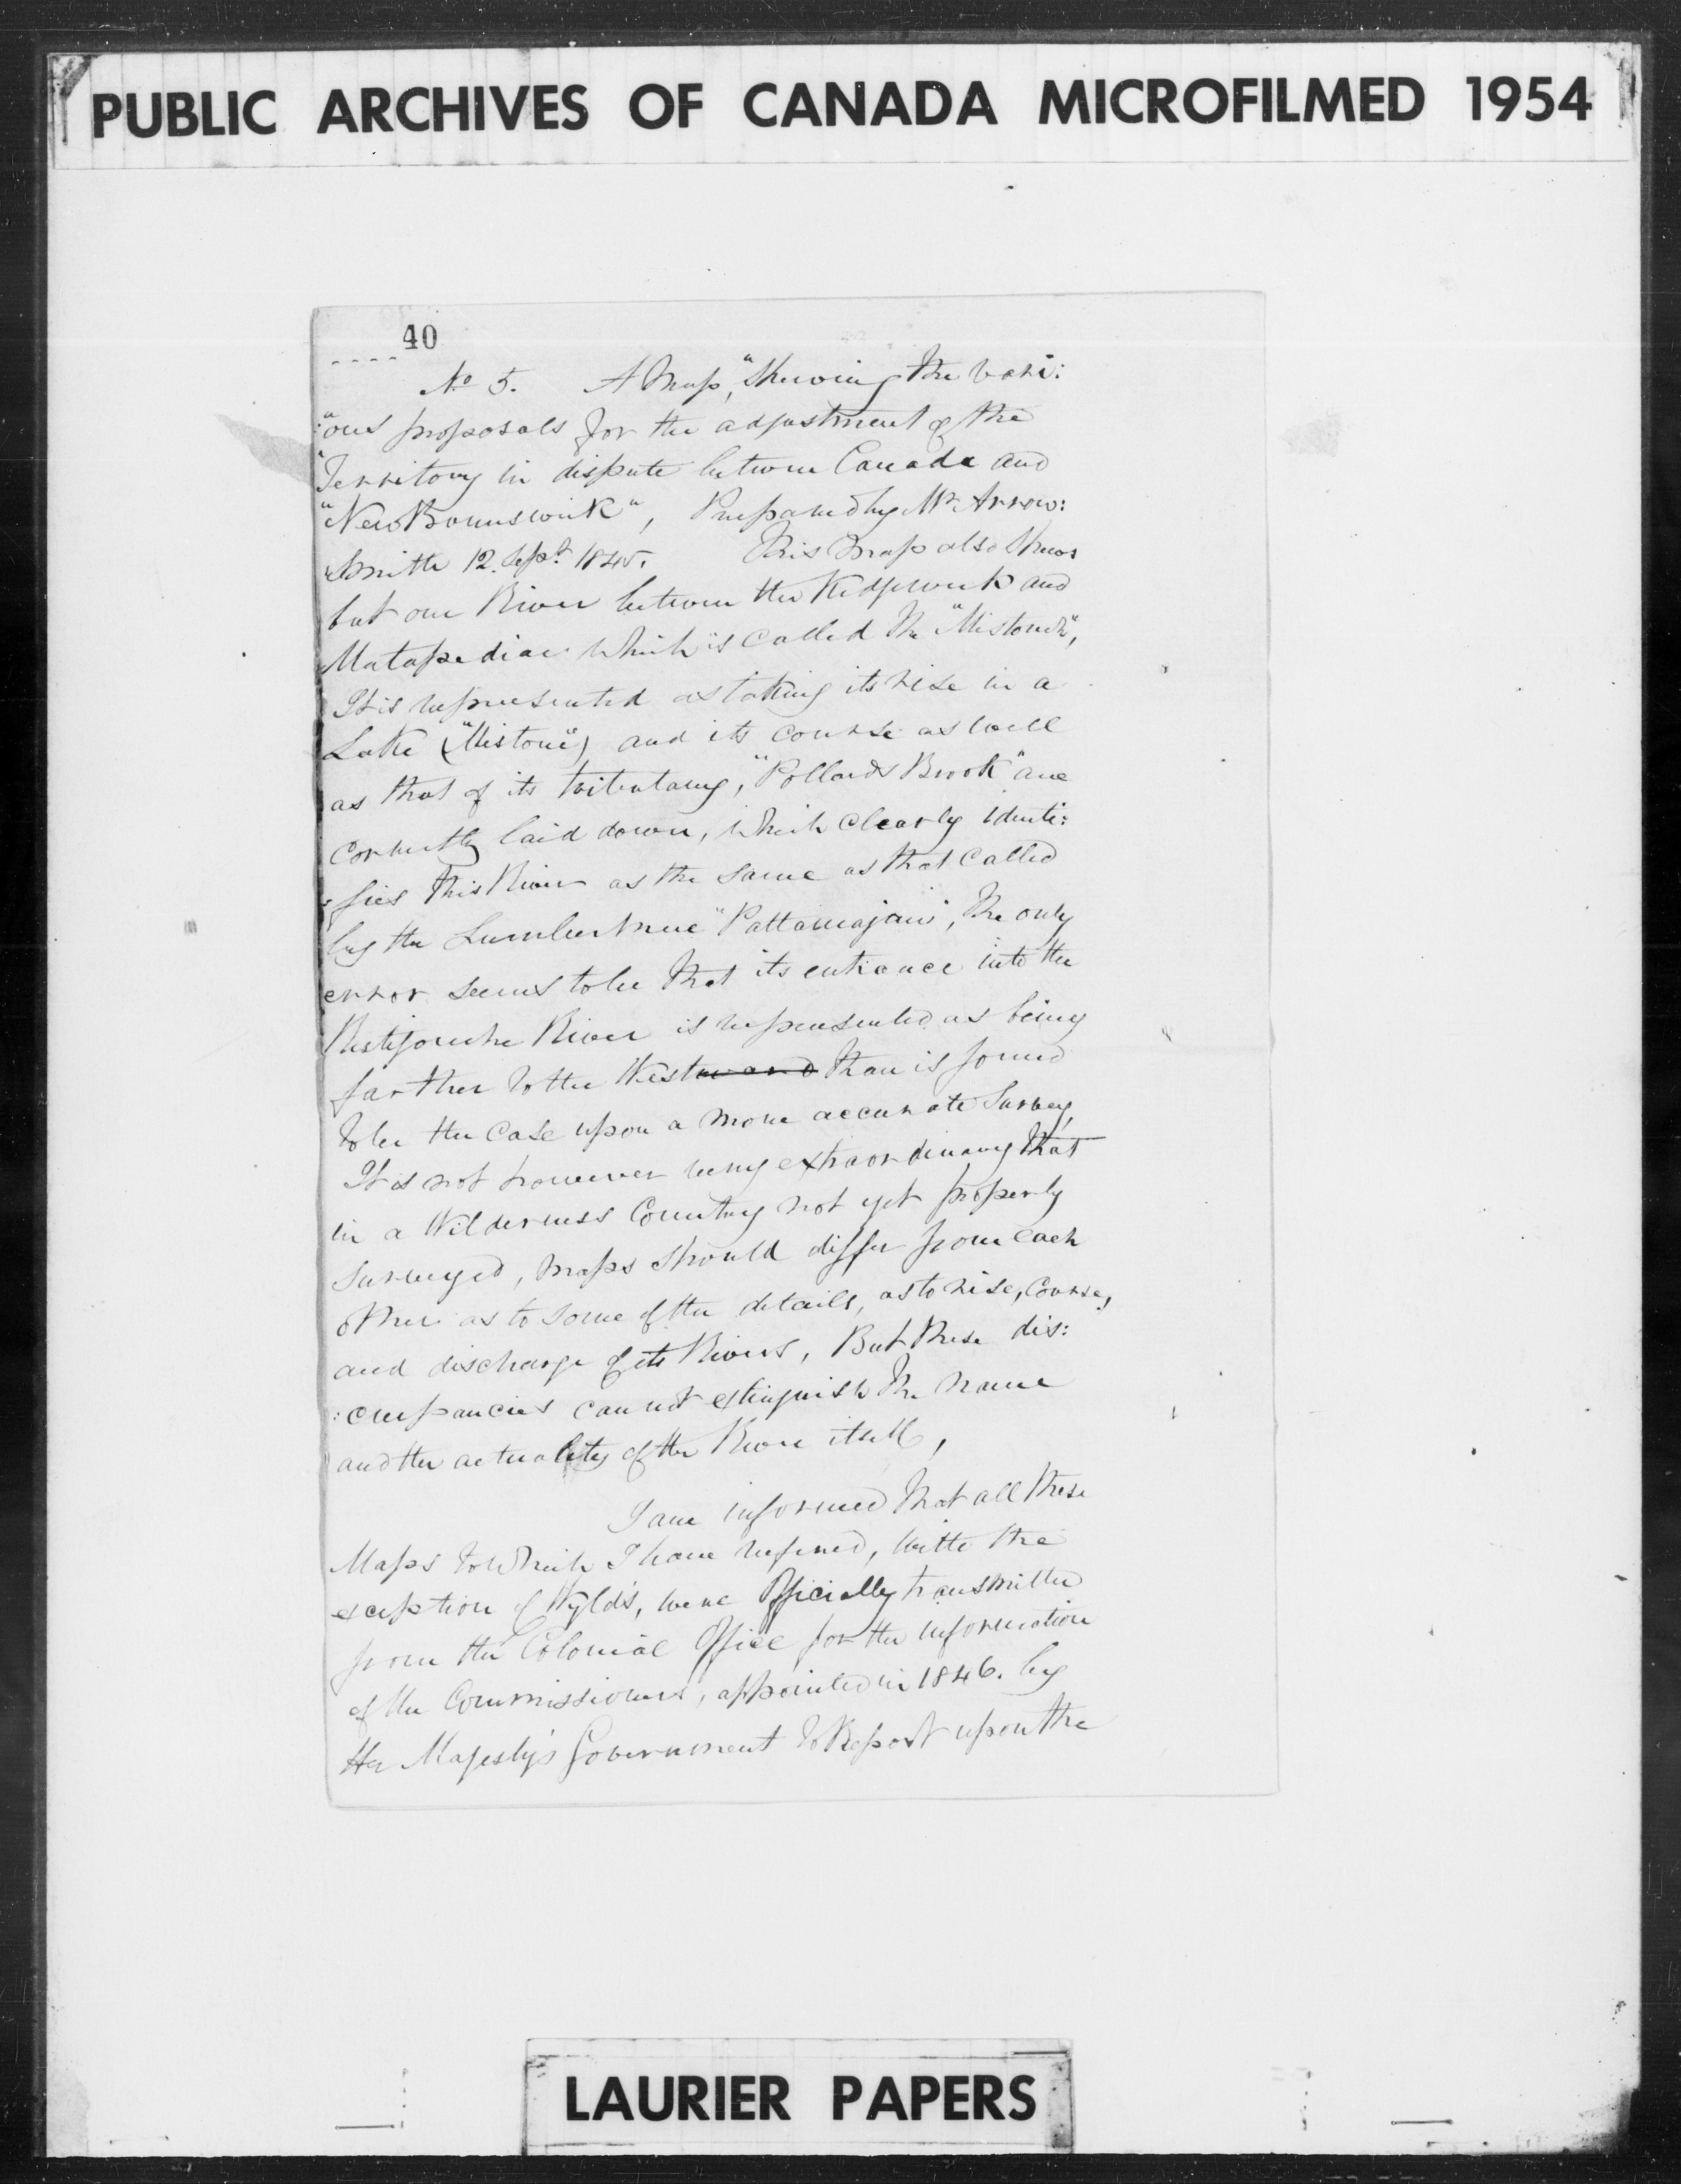 PUBLIC ARCHIVES OF CANADA MICROFILMED 1954
40
No 5. A Map, "Shewing the vari:
:"ous proposals for the adjustment of the
"Territory in dispute between Canada and
"New Brunswick", Prepared by Mr Arrow:
Smith 12. Sept. 1845. This Map also Shews
but one River between the Kedgwick and
Matapediac which is called The "Mistouch",
It is represented as taking its rise in a
Lake ("Mistoue") and its course as well
as that of its tributary, "Pollards Brook" are
correctly laid down, which clearly identi:
:fies this River as the same as that called
by the Lumbermen "Pattamajaw", The only
error seems to be that its entrance into the
Restigouche River is represented as being
farther to the Westward than is found
to be the case upon a more accurate Survey,
It is not however very extraordinary that
in a Wilderness Country not yet properly
surveyed, maps should differ from each
other as to some of the details, as to rise, Course,
and discharge of its Rivers, But these dis:
:crepancies cannot extinguish the name
and the actuality of the River itself,
I am informed that all these
Maps to which I have referred, with the
exception of Wyld's, were Officially transmitted
from the Colonial Office for the information
of the Commissioners, appointed in 1846. by
Her Majesty's Government to Report upon the
LAURIER PAPERS